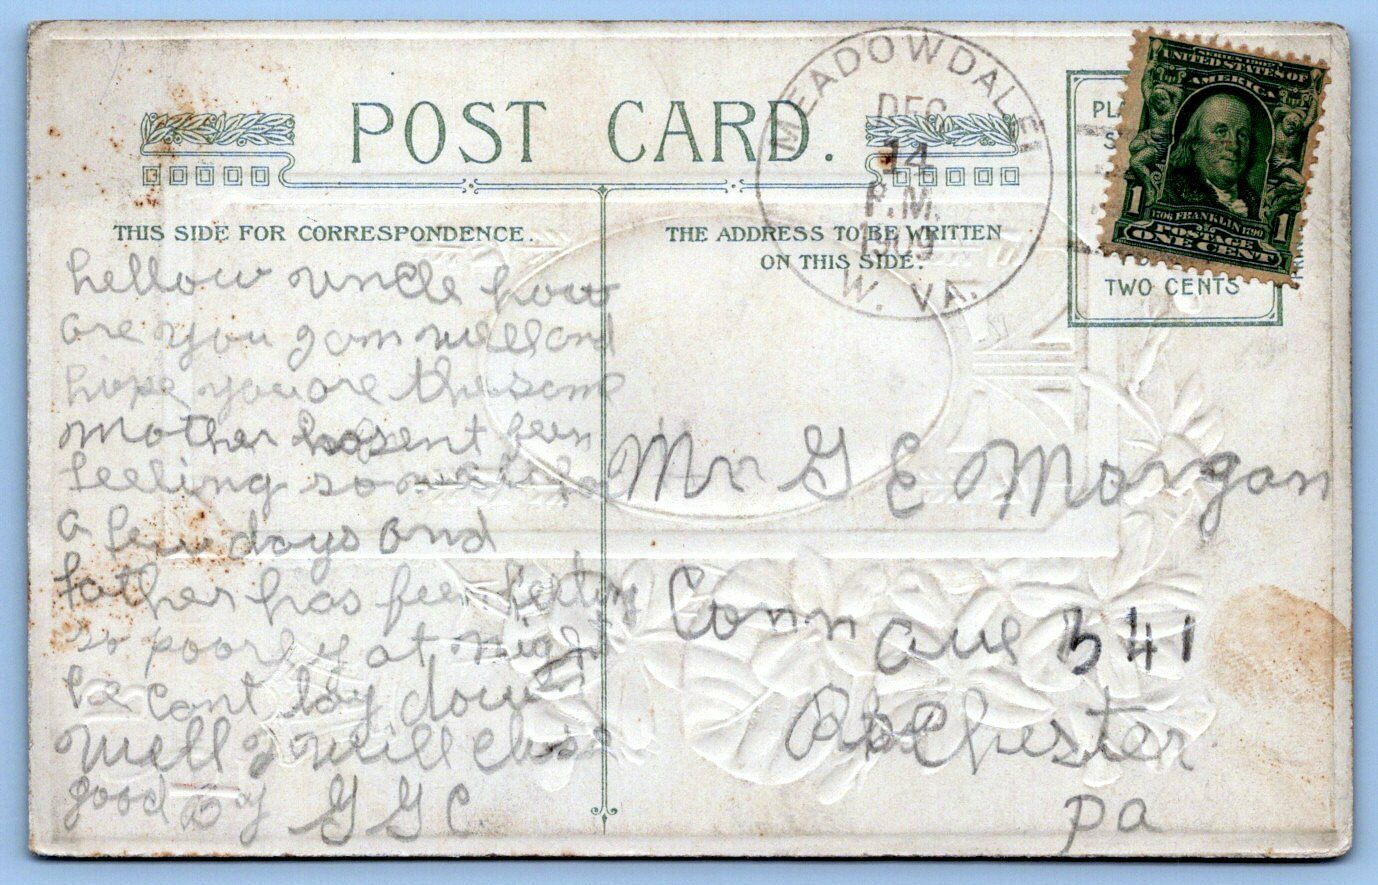 POST CARD.
THIS SIDE FOR CORRESPONDENCE.
hellow uncle how
are you I am well and
hope you are the same
mother hasent been
feeling so well for
a few days and
father has been feeling
so poorly at night
he cant lay down
well I will close
good By G G C
THE ADDRESS TO BE WRITTEN
ON THIS SIDE.
MEADOWDALE
DEC
14
P.M.
1909
W. VA.
SERIES 1902
UNITED STATES OF
AMERICA
1 1
1706 FRANKLIN 1790
POSTAGE
ONE CENT
PLA
S
TWO CENTS
Mr G E Morgan
Conn ave 341
Rochester
pa